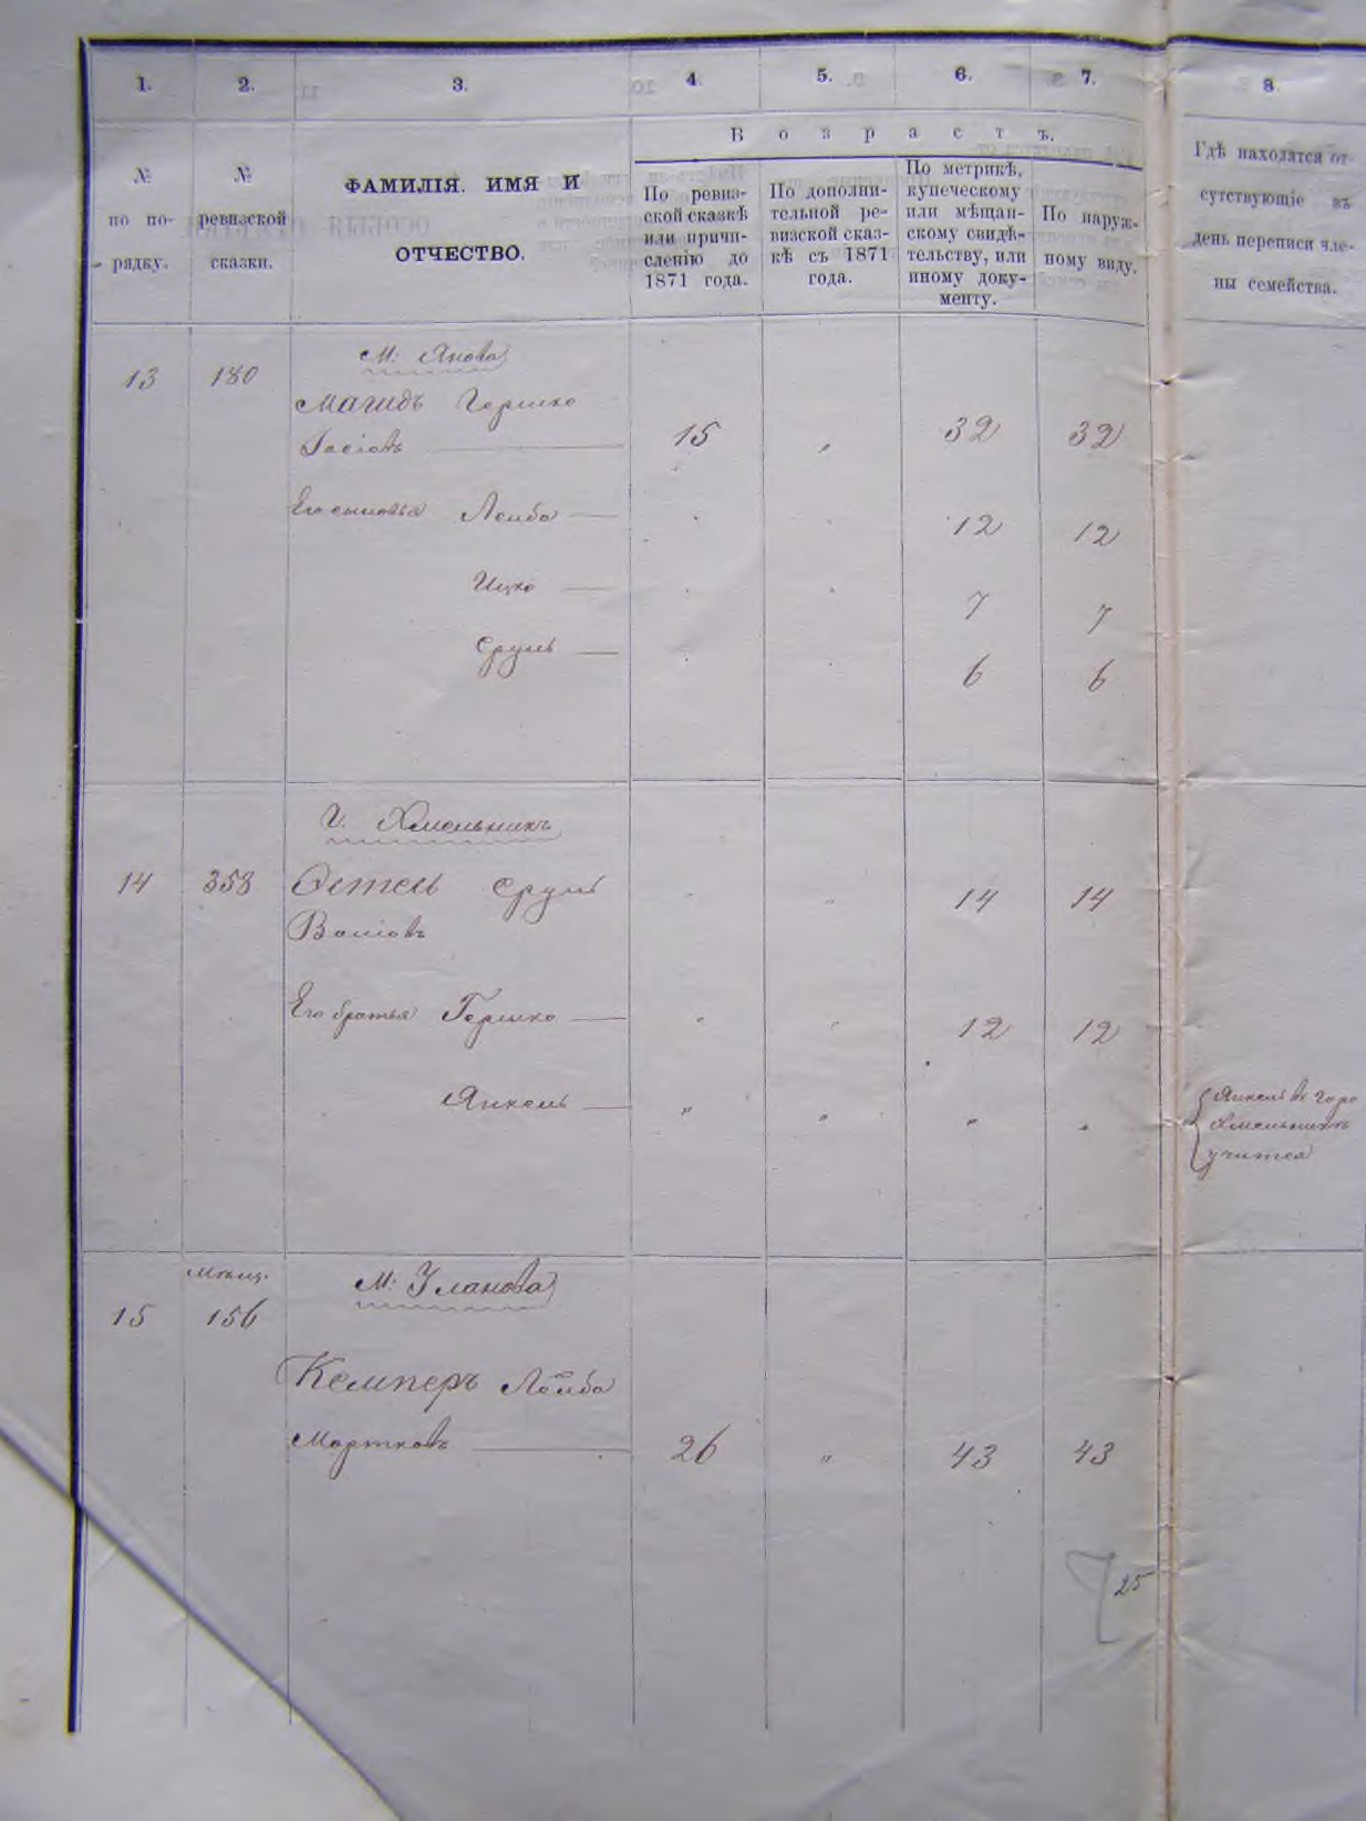 1. 2. 3. 4. 5. 6. 7. 8.
Возрастъ.
№
по по-
рядку.
№
ревизской
сказки.
ФАМИЛІЯ, ИМЯ И
ОТЧЕСТВО.
По ревиз-
ской сказкѣ
или причи-
сленію до
1871 года.
По дополни-
тельной ре-
визской сказ-
кѣ съ 1871
года.
По метрикѣ,
купеческому
или мѣщан-
скому свидѣ-
тельству, или
иному доку-
менту.
По наруж-
ному виду.
Гдѣ находятся от-
сутствующіе въ
день переписи чле-
ны семейства.
М. Янова
13 180 Магидъ Гершко
Іосіовъ 15 „ 32 32
Его сыновья Лейба 12 12
Ицко 7 7
Сруль 6 6
Г. Хмельникъ
14 358 Остель Сруль „ „ 14 14
Волковъ
Его братья Гершко „ „ 12 12
Янкель „ „ „ „
Янкель въ горо
Хмельникѣ
учится
М. Уланова
15 156
Кемперъ Лейба
Мортковъ 26 „ 43 43
25